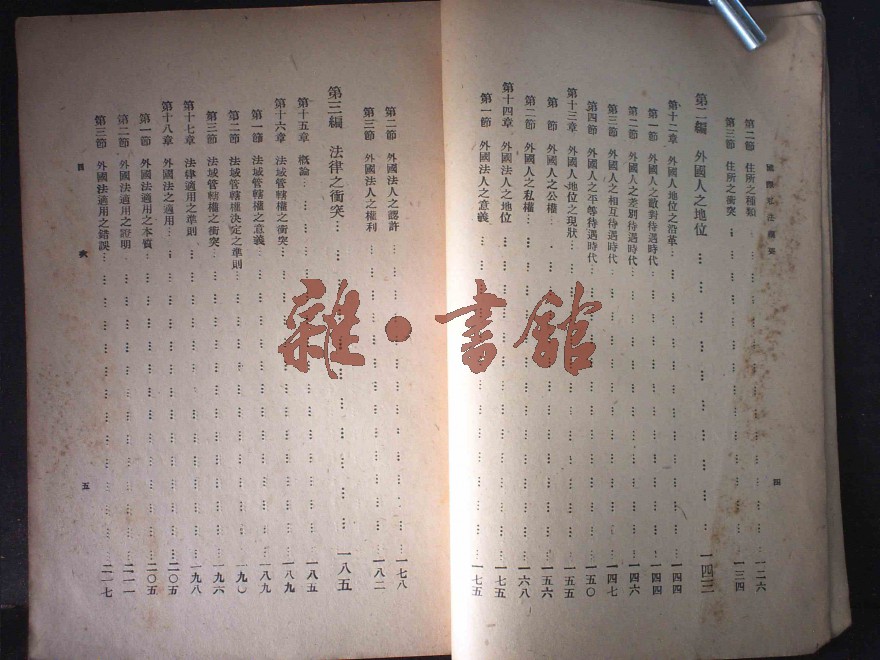 國際私法綱要
四
第二節 住所之種類 一二六
第三節 住所之衝突 一三四
第二編 外國人之地位 一四三
第十二章 外國人地位之沿革 一四四
第一節 外國人之敵對待遇時代 一四四
第二節 外國人之差別待遇時代 一四六
第三節 外國人之相互待遇時代 一四七
第四節 外國人之平等待遇時代 一五〇
第十三章 外國人地位之現狀 一五五
第一節 外國人之公權 一五六
第二節 外國人之私權 一六八
第十四章 外國法人之地位 一七五
第一節 外國法人之意義 一七五
第二節 外國法人之認許 一七八
第三節 外國法人之權利 一八二
第三編 法律之衝突 一八五
第十五章 概論 一八五
第十六章 法域管轄權之衝突 一八九
第一節 法域管轄權之意義 一八九
第二節 法域管轄權決定之準則 一九〇
第三節 法域管轄權之衝突 一九六
第十七章 法律適用之準則 一九八
第十八章 外國法之適用 二〇五
第一節 外國法適用之本質 二〇五
第二節 外國法適用之證明 二一一
第三節 外國法適用之錯誤 二一七
目次
五
雜·書館